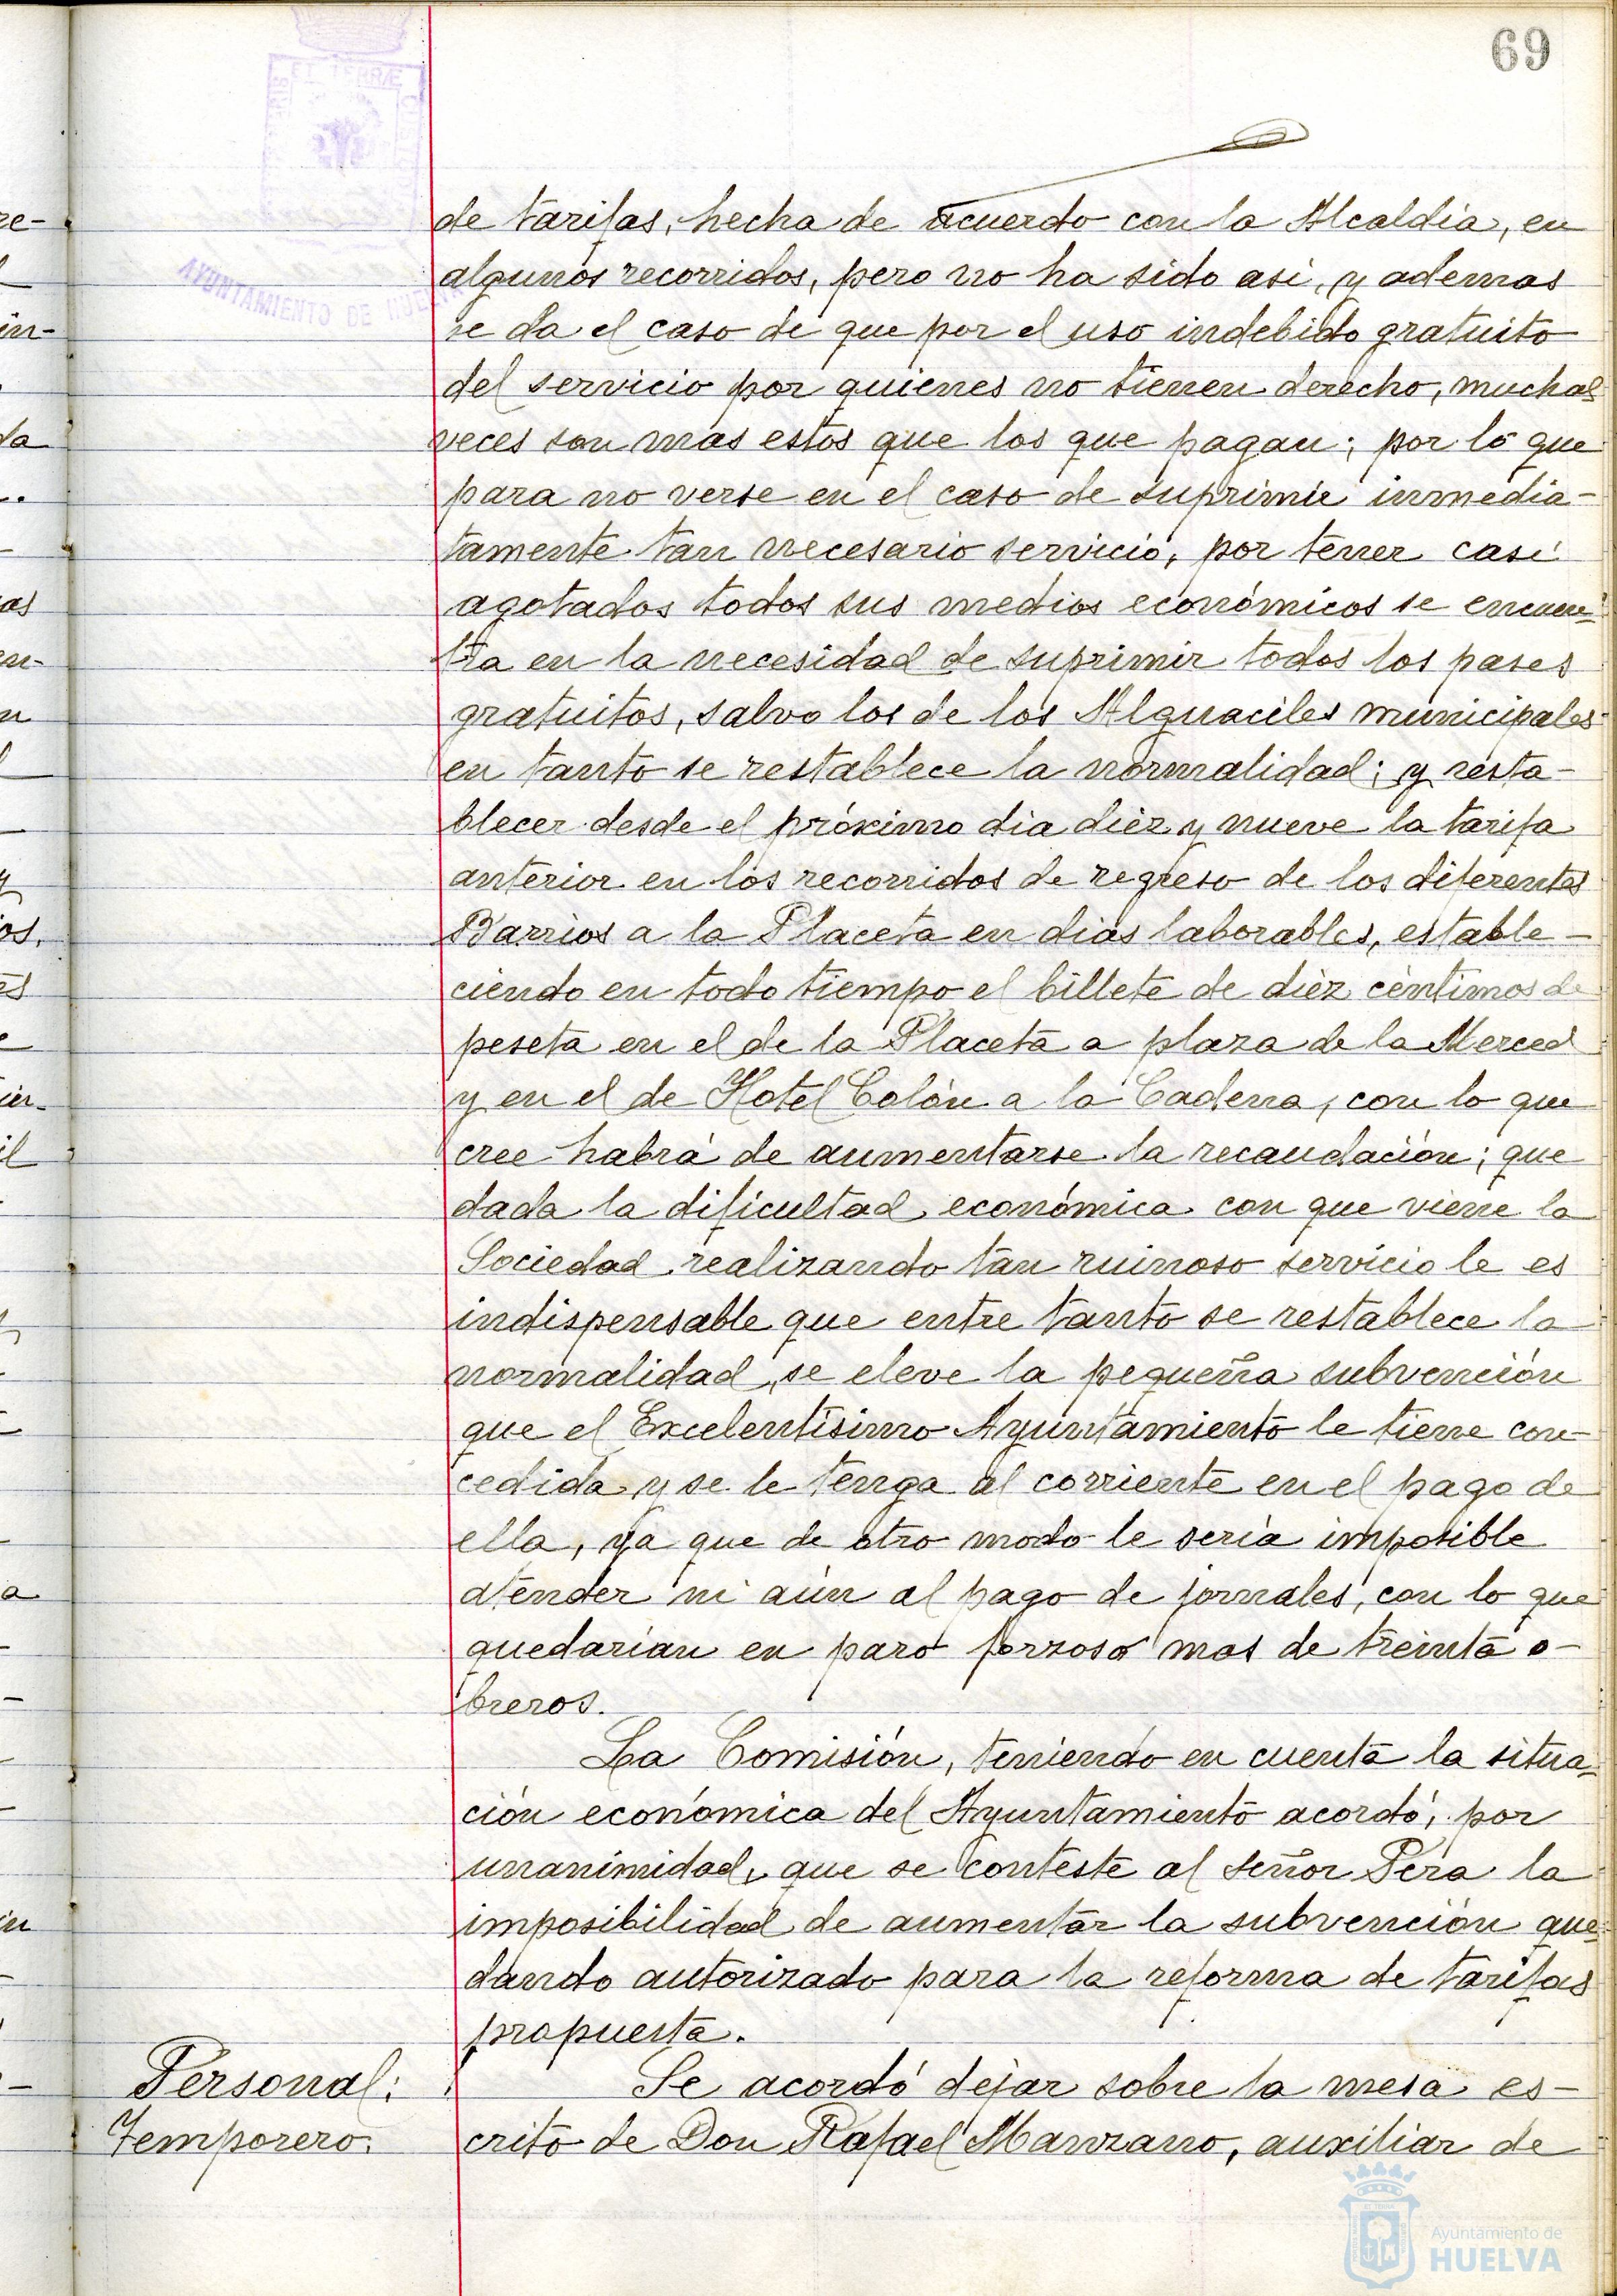 69
de tarifas, hecha de acuerdo con la Alcaldía, en
algunos recorridos, pero no ha sido asi, y ademas
se da el caso de que por el uso indebido gratuito
del servicio por quienes no tienen derecho, muchas
veces son mas estos que los que pagan; por lo que
para no verse en el caso de suprimir inmedia-
tamente tan necesario servicio, por tener casi
agotados todos sus medios económicos se encuen-
tra en la necesidad de suprimir todos los pases
gratuitos, salvo los de los Alguaciles municipales
en tanto se restablece la normalidad; y resta-
blecer desde el próximo dia diez y nueve la tarifa
anterior en los recorridos de regreso de los diferentes
Barrios a la Placeta en dias laborables, estable-
ciendo en todo tiempo el billete de diez céntimos de
peseta en el de la Placeta a plaza de la Merced
y en el de Hotel Colón a la Cadena, con lo que
cree habrá de aumentarse la recaudación; que
dada la dificultad económica con que viene la
Sociedad realizando tan ruinoso servicio le es
indispensable que entre tanto se restablece la
normalidad, se eleve la pequeña subvención
que el Excelentisimo Ayuntamiento le tiene con-
cedida y se le tenga al corriente en el pago de
ella, ya que de otro modo le sería imposible
atender ni aún al pago de jornales, con lo que
quedarían en paro forzoso mas de treinta o-
breros.
La Comisión, teniendo en cuenta la situa-
ción económica del Ayuntamiento acordó, por
unanimidad, que se conteste al señor Pera la
imposibilidad de aumentar la subvención que-
dando autorizado para la reforma de tarifas
propuesta.
Personal:
Temporero.
Se acordó dejar sobre la mesa es-
crito de Don Rafael Manzano, auxiliar de
AYUNTAMIENTO DE HUELVA
Ayuntamiento de
HUELVA